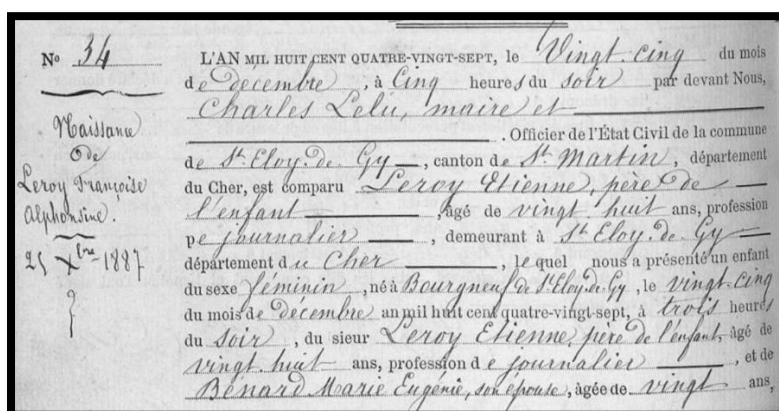 N° 34
Naissance
de
Leroy Françoise
Alphonsine.
25 Xbre 1887
L'AN MIL HUIT CENT QUATRE-VINGT-SEPT, le Vingt-cinq du mois
de décembre, à Cinq heures du soir par devant Nous,
Charles Lelu, maire et
. Officier de l'État Civil de la commune
de St Eloy-de-Gy, canton de St Martin, département
du Cher, est comparu Leroy Etienne, père de
l'enfant, âgé de vingt huit ans, profession
de journalier, demeurant à St Eloy-de-Gy
département du Cher, lequel nous a présenté un enfant
du sexe féminin, né à Bourgneuf de St Eloy-de-Gy, le vingt-cinq
du mois de décembre an mil huit cent quatre-vingt-sept, à trois heures
du soir, du sieur Leroy Etienne, père de l'enfant, âgé de
vingt-huit ans, profession de journalier, et de
Bénard Marie Eugénie, son épouse, âgée de vingt ans,